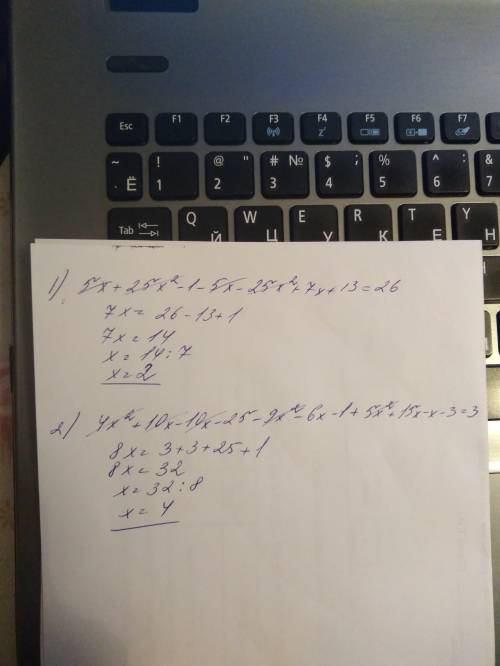 Esc F1 F2 F3 F4 F5 F6 F7
~ ! @ " # № $ ; % ^ : &
Ё 1 2 3 4 5 6 7
Tab Q W E R T Y
Й Ц У К Е Н
1) 5x + 25x² - 1 - 5x - 25x² + 7x + 13 = 26
7x = 26 - 13 + 1
7x = 14
x = 14 : 7
x = 2
2) 4x² + 10x - 10x - 25 - 9x² - 6x - 1 + 5x² + 15x - x - 3 = 3
8x = 3 + 3 + 25 + 1
8x = 32
x = 32 : 8
x = 4